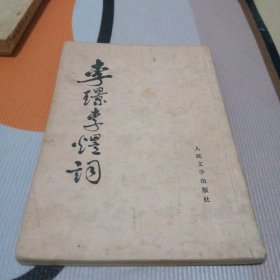 李璟李煜詞
人民文学出版社